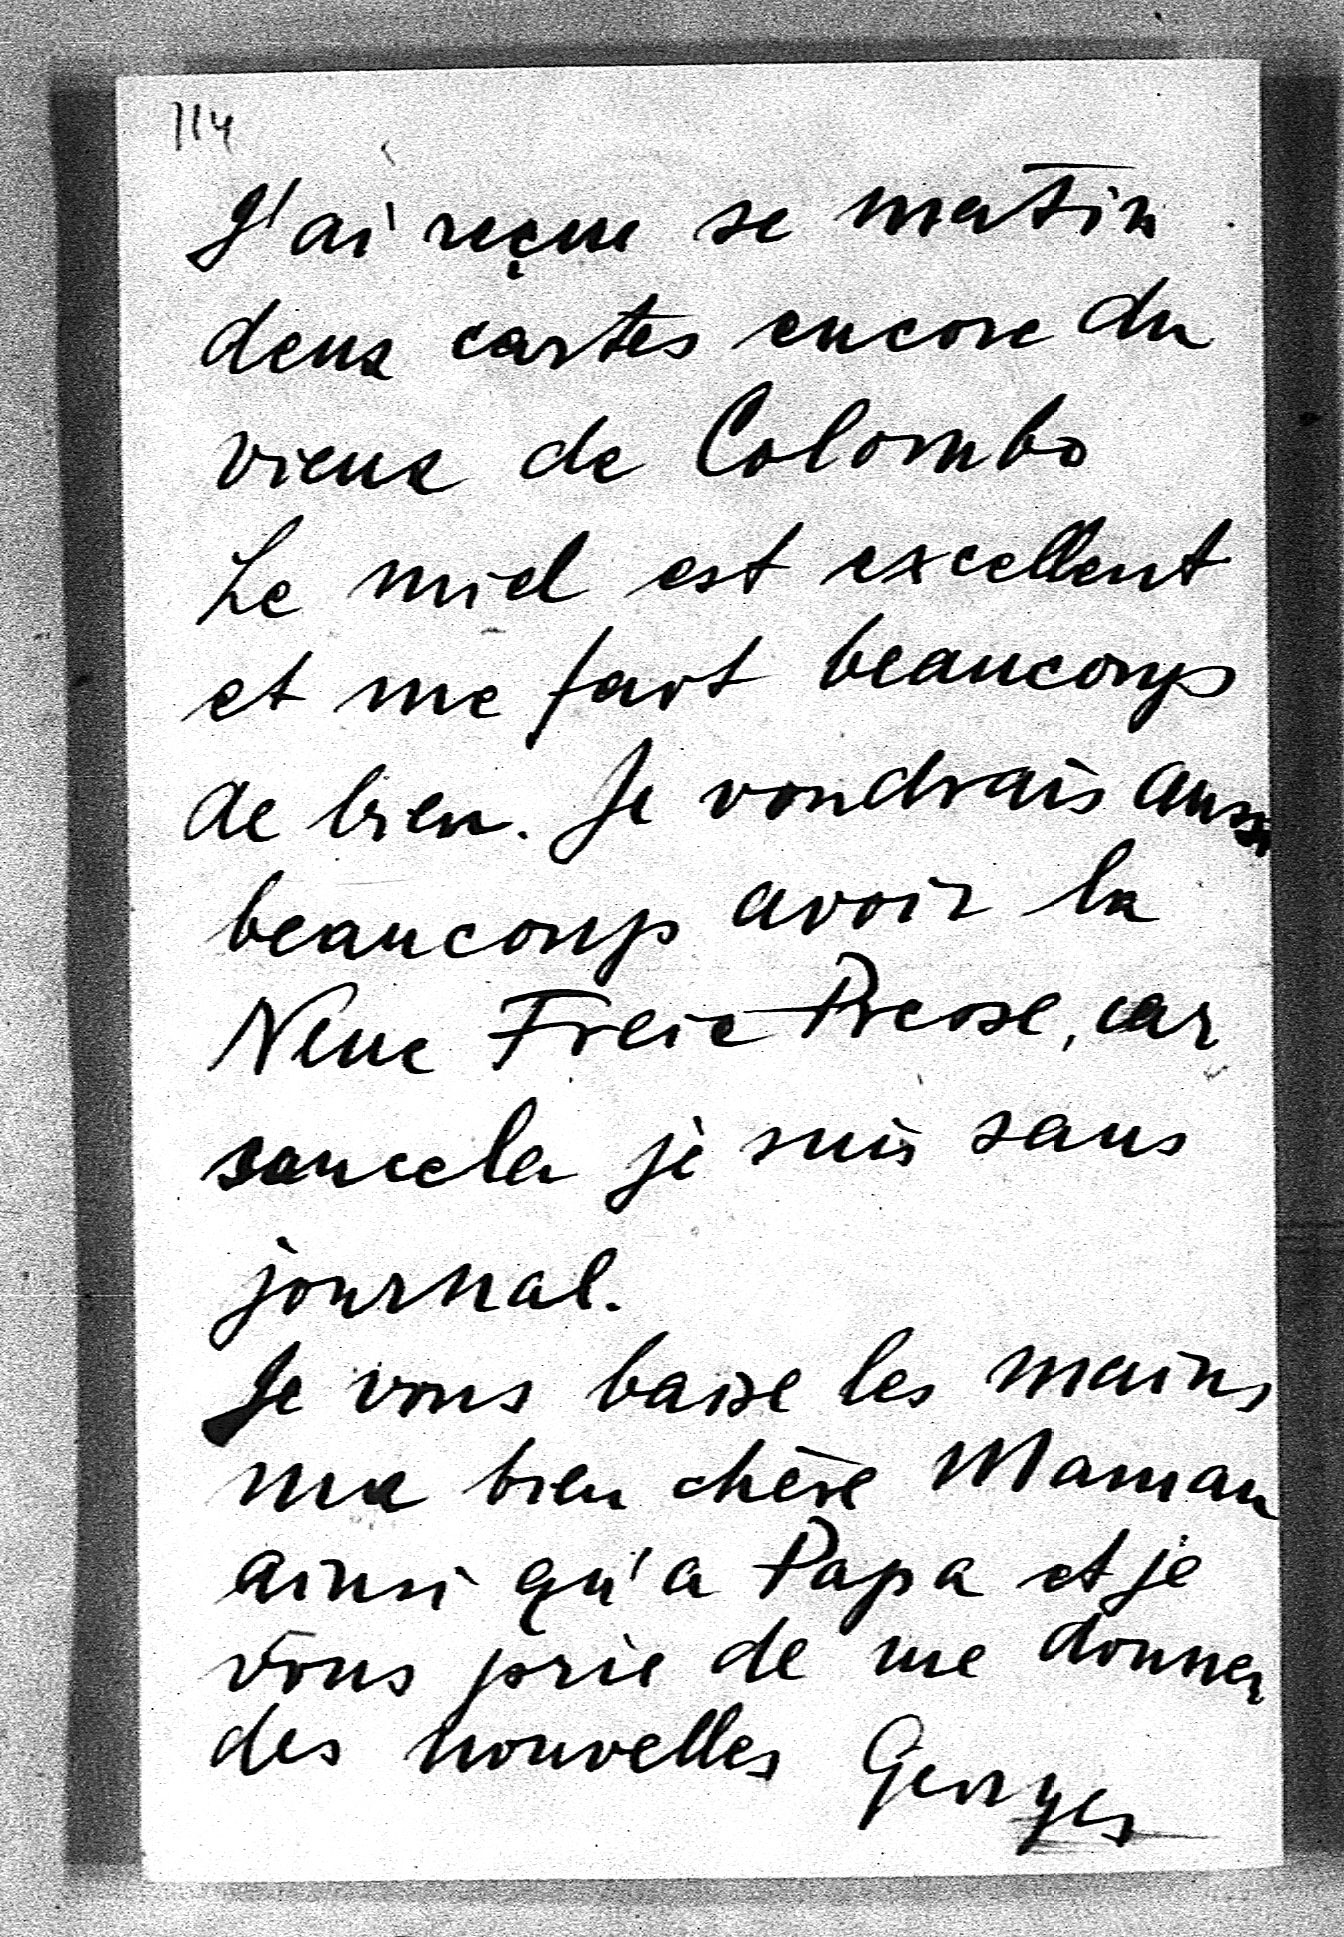 114
J'ai reçue se matin
deux cartes encore du
vieux de Colombo
Le miel est excellent
et me fait beaucoup
de bien. Je voudrais aussi
beaucoup avoir la
Neue Freie Presse, car
sancela je suis sans
journal.
Je vous baise les mains
ma bien chère Maman
ainsi qu'a Papa et je
vous prie de me donner
des nouvelles Georges